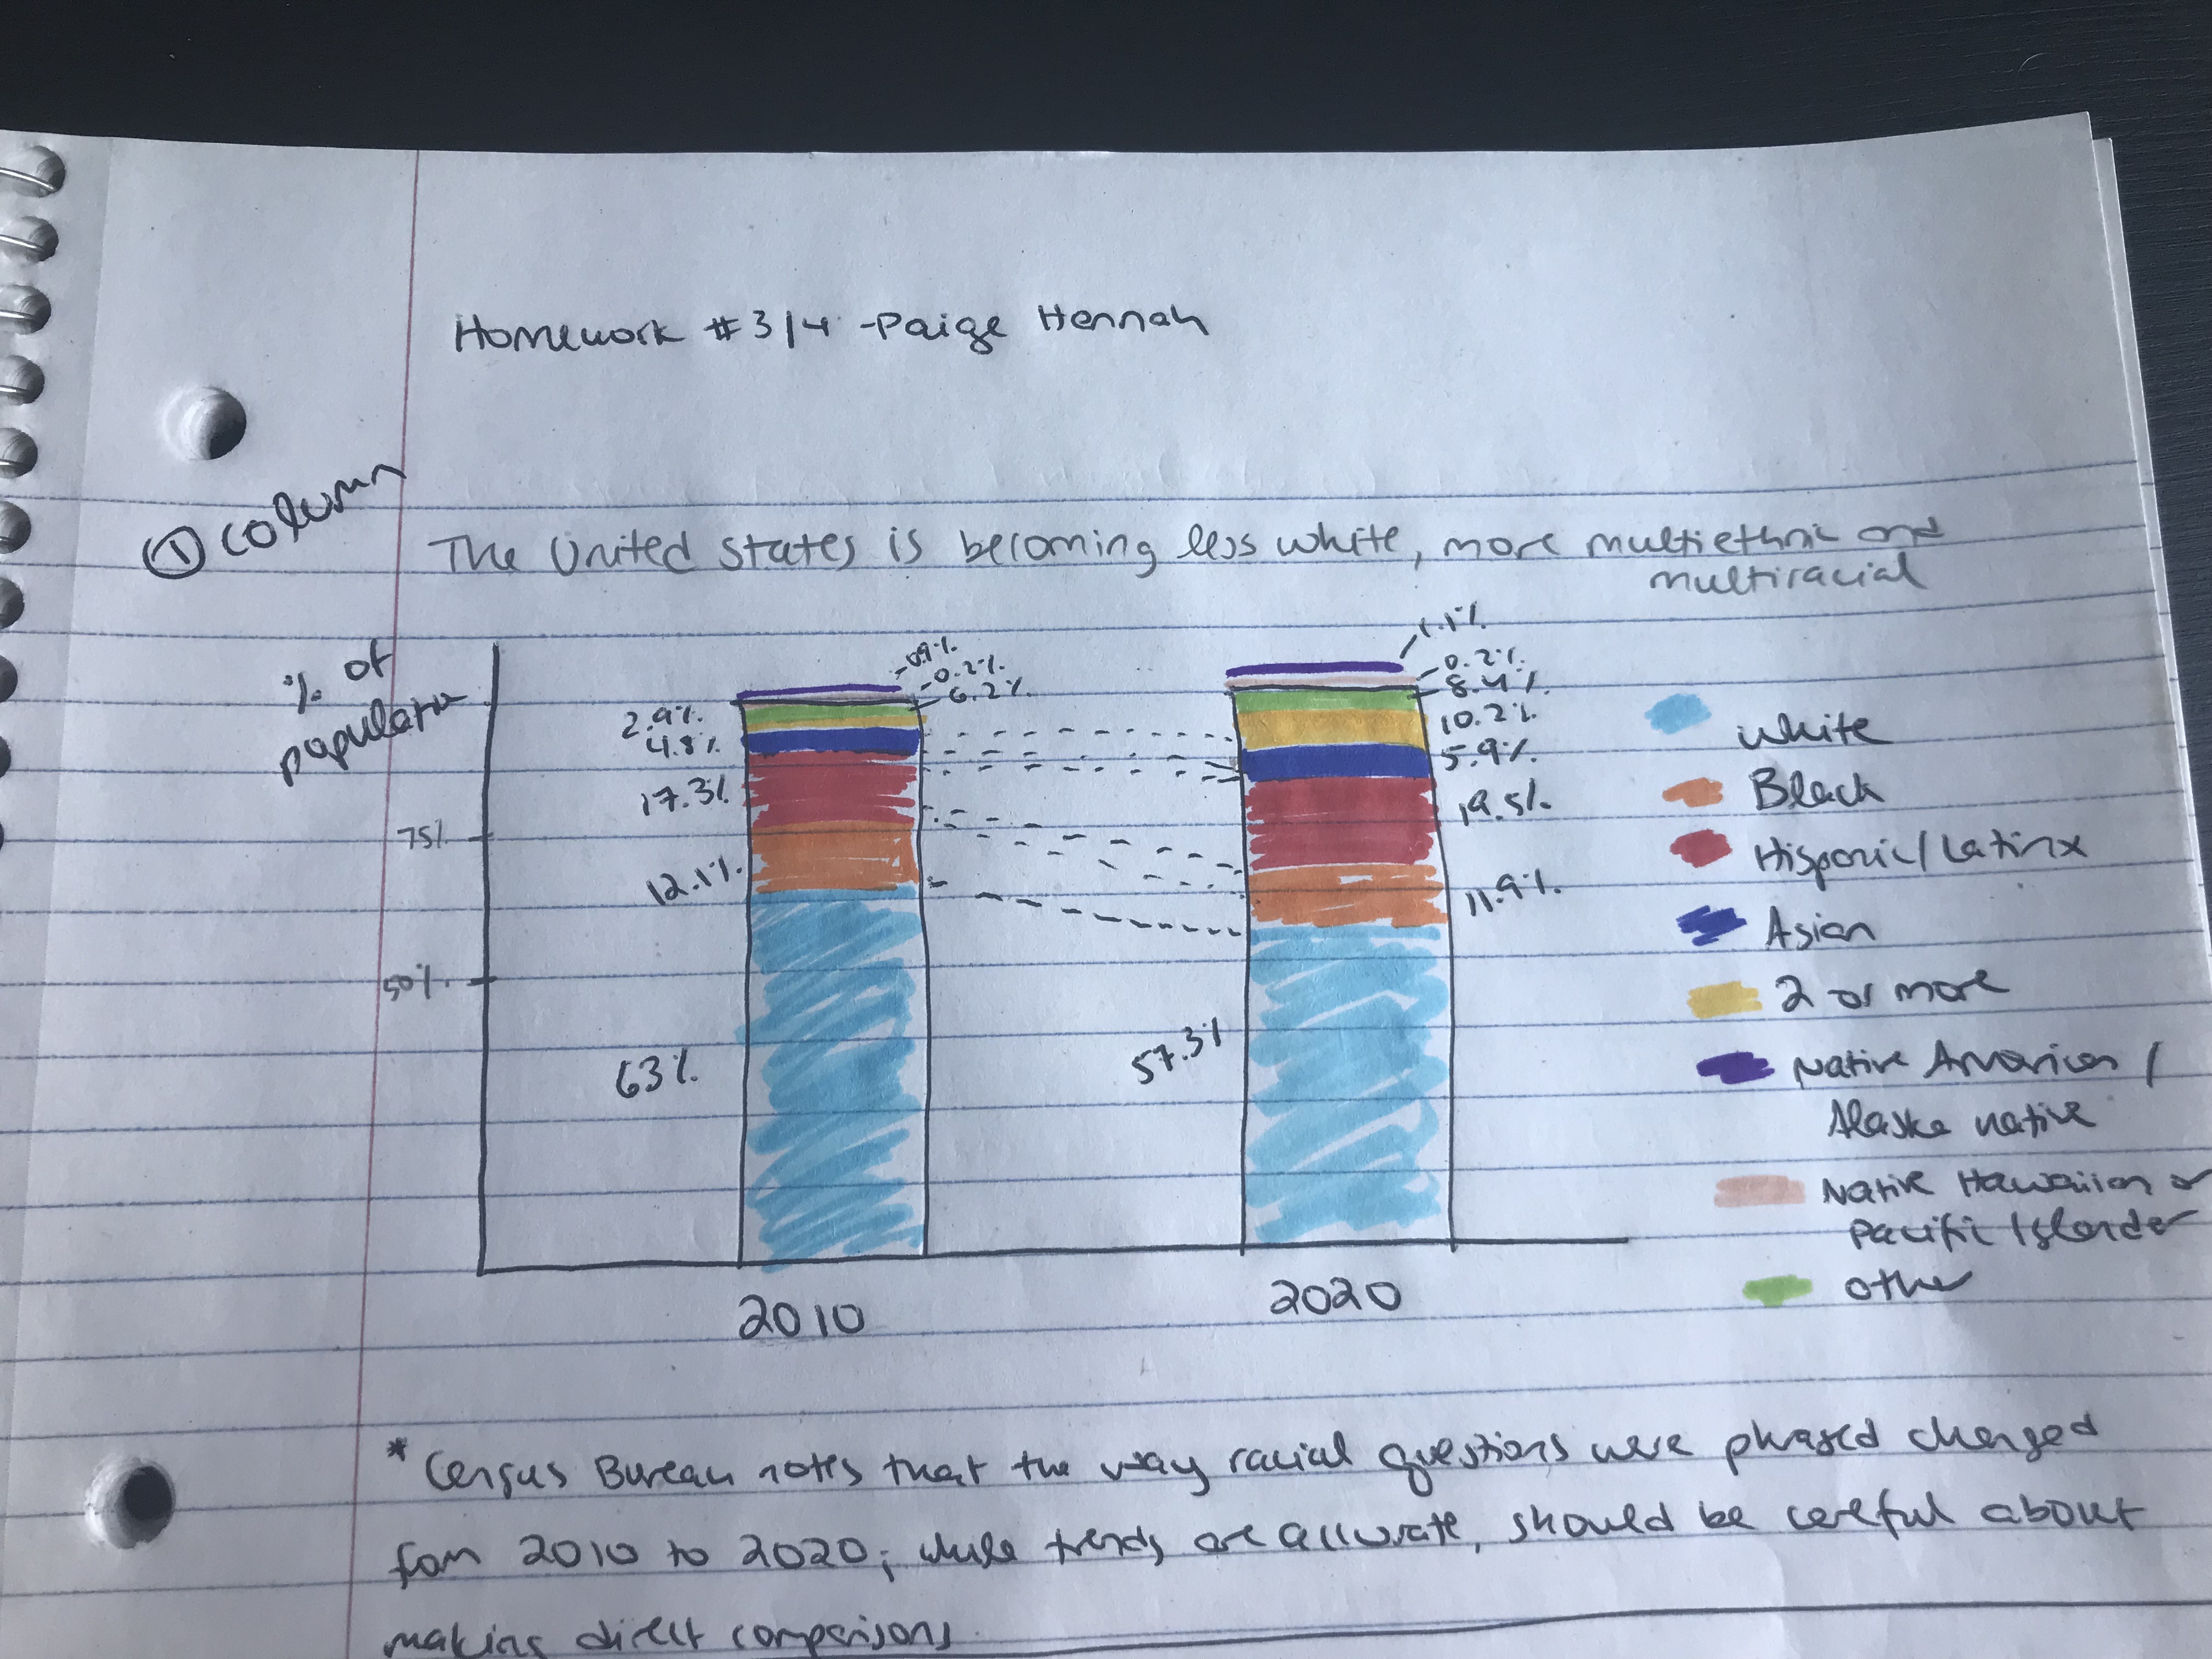 Homework #3/4 - Paige Hennah
① column
The United States is becoming less white, more multiethnic and
multiracial
% of
population
75%
50%
2.9%
4.8%
17.3%
12.1%
63%
0.9%
0.2%
6.2%
57.3%
1.1%
0.2%
8.4%
10.2%
5.9%
19.5%
11.9%
2010
2020
White
Black
Hispanic/Latinx
Asian
2 or more
Native American /
Alaska native
Native Hawaiian or
Pacific Islander
other
* Census Bureau notes that the way racial questions were phrased changed
from 2010 to 2020; while trends are accurate, should be careful about
making direct comparisons.